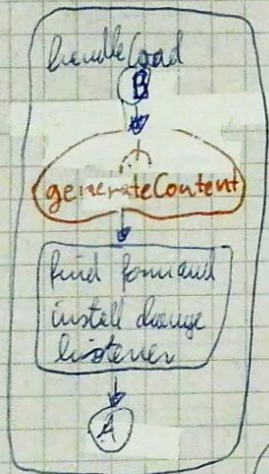 handleLoad
B
generateContent
find form and
install change
listener
A